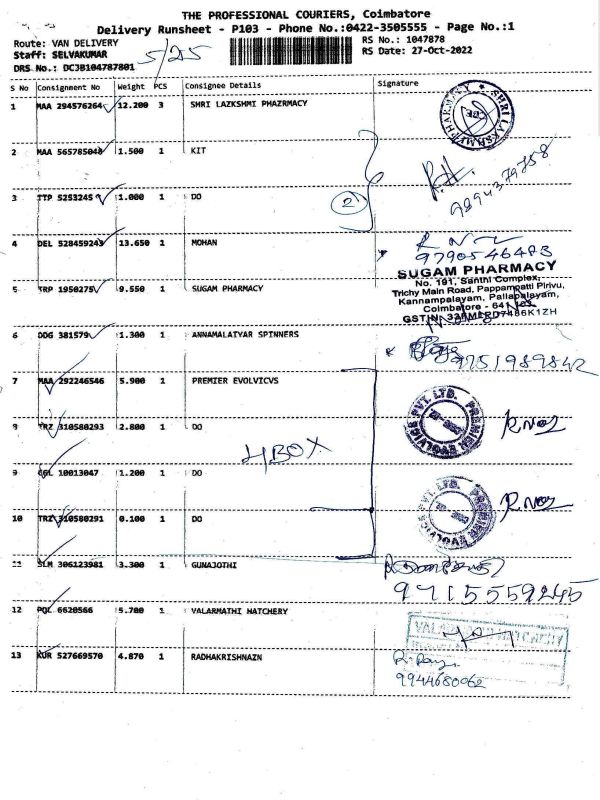 THE PROFESSIONAL COURIERS, Coimbatore
Delivery Runsheet - P103 - Phone No.:0422-3505555 - Page No.:1
Route: VAN DELIVERY
Staff: SELVAKUMAR
DRS No.: DCJB104787801
5/25
RS No.: 1047878
RS Date: 27-Oct-2022
S No Consignment No Weight PCS Consignee Details Signature
1 MAA 294576264 12.200 3 SHRI LAZKSHMI PHAZRMACY
2 MAA 565785048 1.500 1 KIT
9894379758
3 TTP 5253245 1.000 1 DO
2
4 DEL 528459243 13.650 1 MOHAN
9790546483
5 TRP 1950275 9.550 1 SUGAM PHARMACY
SUGAM PHARMACY
No. 191, Santhi Complex,
Trichy Main Road, Pappampatti Pirivu,
Kannampalayam, Pallapalayam,
Coimbatore - 641
6 DDG 381579 1.300 1 ANNAMALAIYAR SPINNERS
9751989842
7 MAA 292246546 5.900 1 PREMIER EVOLVICVS
8 TRZ 310580293 2.800 1 DO
4 BOX
9 CGL 10013047 1.200 1 DO
10 TRZ 310580291 0.100 1 DO
11 SLM 306123981 3.300 1 GUNAJOTHI
9715559245
12 PQL 6620566 5.700 1 VALARMATHI HATCHERY
13 KUR 527669570 4.870 1 RADHAKRISHNAZN
9944680062